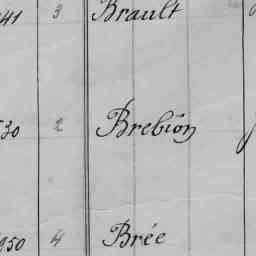 41 3 Brault
30 2 Brebion
950 4 Brée